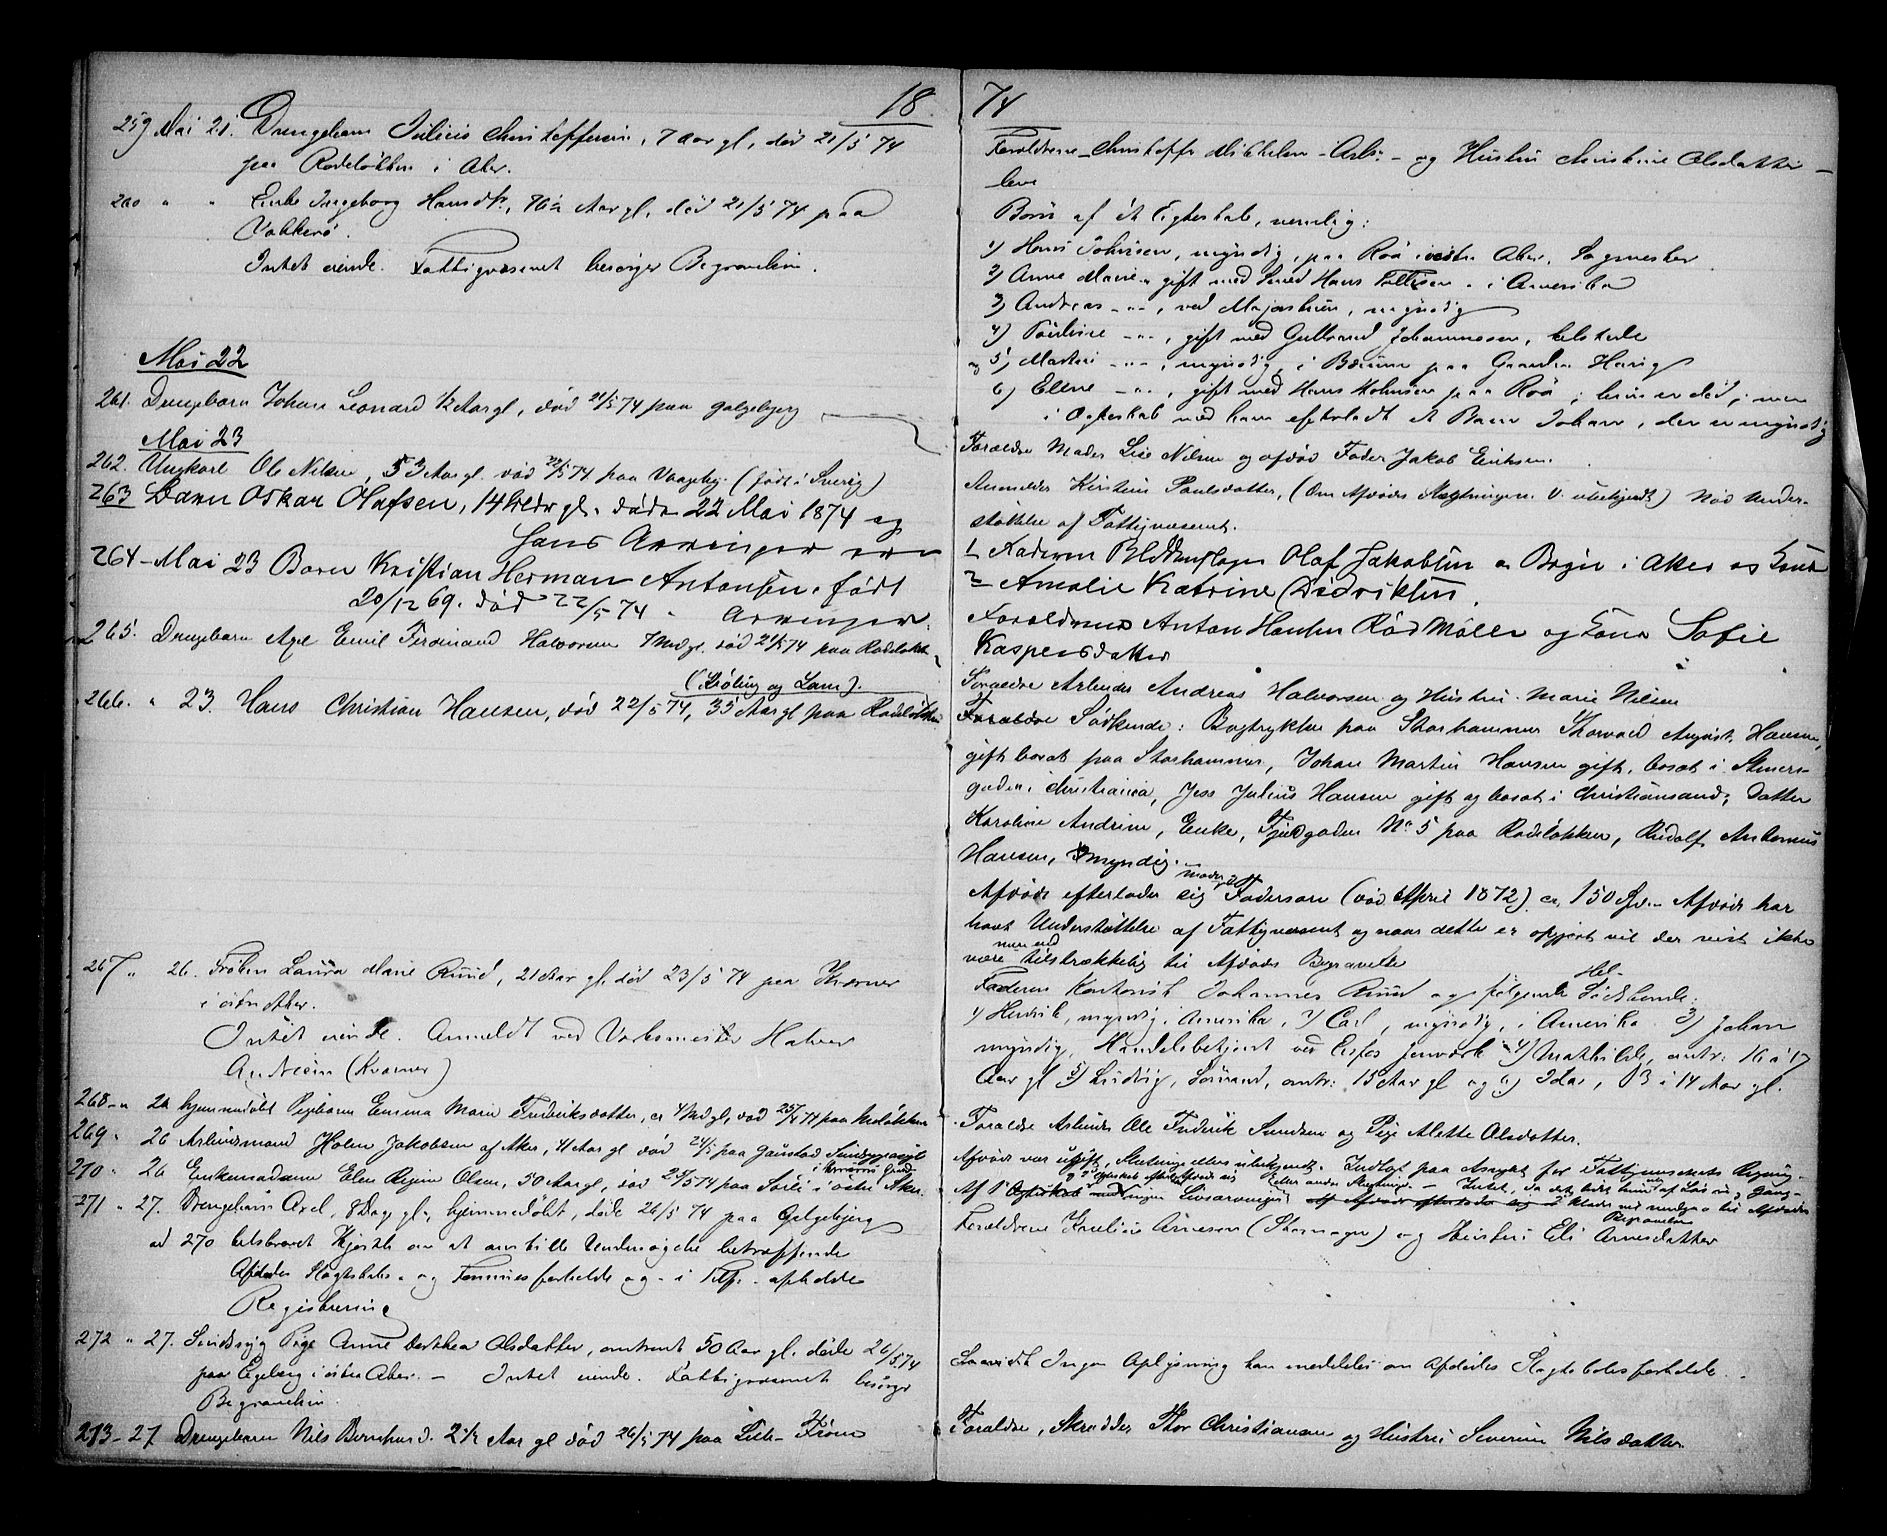 18
259 Mai 21. Drengebarn Julius Christoffersen, 7 Aar gl, død 21/5 74
paa Rodeløkken i Aker.
260 " " Enke Ingeborg Hansdtr, 76 Aar gl, død 21/5 74 paa
Vækkerø.
Intet eiende. Fattigvæsenet besørger Begravelsen.
Mai 22
261. Drengebarn Johan Leonard 1/2 Aar gl, død 21/5 74 paa Galgebjerg
Mai 23
262. Ungkarl Ole Nilsen, 53 Aar gl. død 22/5 74 paa (født i Sverig)
263 Barn Oskar Olafsen, 14 gl. døde 22 Mai 1874 og
hans Arvinger ere
264 - Mai 23 Barn Kristian Herman Antonsen. født
20/12 69. død 22/5 74 - Arvinger:
265. Drengebarn Axel Emil Ferdinand Halvorsen 7 Mdgl. død 21/5 74 paa Rodeløkk
(Krøbling og Lam).
266. " 23. Hans Christian Hansen, død 22/5 74, 35 Aar gl paa Rodeløkken
267 " 26. Frøken Laura Marie Ruud, 21 Aar gl, død 23/5 74 paa Kværner
i østre Aker.
Intet eiende. Anmeldt ved Værksmester Halvor
Andersen (Kværner)
268 - " 26 hjemmedøbt Pigebarn Emma Marie Fredriksdatter, ca 4 Md gl, død 25/5 74 paa Rodeløkken
269 " 26 Arbeidsmand Holm Jakobsen af Aker, 41 Aar gl død 24/5 paa Gaustad Sindssygeasyl
270 " 26 Enkemadame Elen Regine Olsen, 50 Aar gl, død 25/5 74 paa Sorli i østre Aker.
271 " 27. Drengebarn Axel, 8 Dag gl, hjemmedøbt, døde 26/5 74 paa Galgebjerg
ad 270 om at anstille Undersøgelse betræffende
Afdødes Slægtskabs- og Formuesforholde og - i Tilf. - afholde
Registrering
272 " 27. Sindssyg Pige Anne Dorthea Olsdatter, omtrent 50 Aar gl. døde 26/5 74
paa Egeberg i østre Aker. - Intet eiende. Fattigvæsenet besørger
Begravelsen.
273 - 27 Drengebarn Nils Bernhard. 2 1/2 Aar gl død 26/5 74 paa Lille-Frøen
74
Forældrene Christoffer Mikkelsen - Arb: - og Hustru Christine Olsdatter -
leve
Børn af ét Egteskab, nemlig:
1) Hans Johnsen, myndig, paa Røa i vestre Aker, Sagmester
2) Anne Marie - gift med Smed Hans Tollefsen - i Amerika
3) Andreas -"-, ved Majorstuen, myndig
4) Pauline -"-, gift med Gulbrand Johannessen,
og 5) Martin -"-, myndig, i Bærum paa Haug
6) Ellene -"-, gift med Hans Holmsen paa Røa; hun er død, men
i Egteskab med ham efterladt et Barn Johan, der er myndig
Forældre Moder Lise Nilsen og afdød Fader Jakob Eriksen.
Anmelder Kirstin Paulsdatter, (Om Afdødes Slægtninger V. ubekjendt) Nød Under-
støttelse af Fattigvæsenet.
1 Faderen Olaf Jakobsen a Bryn i Aker og Kone
2 Amalie Katrine Didriksen.
Forældrene Anton Hansen Rød Mølle og Kone Sofie
Kaspersdatter
Forældre Arbeider Andreas Halvorsen og Hustru Marie Nilsen
Forældre Sødskende: Bogtrykker paa Storhammer Thorvald August Hansen,
gift bosat paa Storhammer, Johan Martin Hansen gift, bosat i Stener-
gaden i Christiania, Jess Julius Hansen gift og bosat i Christiansand; Datter
Karoline Andrine, Enke, Fjeldgaden No 5 paa Rodeløkken, Rudolf Antonius
Hansen, myndig.
Afdøde efterlader sig Fadersarv (død April 1872) ca. 150 Spd. Afdøde har
havt Understøttelse af Fattigvæsenet og naar dette er opgjort vil der vist ikke
være tilstrækkelig til Afdødes Begravelse
Faderen Kontorist Johannes Ruud og følgende Hel-Sødskende:
1) Henrik, myndig, Amerika, 2) Carl, myndig, i Amerika. 3) Johan
myndig, Handelsbetjent ved Eidsfos Jernværk 4) Mathilde, omtr: 16 a 17
Aar gl 5) Ludvig, Sømand, omtr: 15 Aar gl og 6) Ida, 13 a 14 Aar gl.
Forældre Arbeider Ole Fredrik Svendsen og Pige Alette Olsdatter.
Afdøde var ugift, Slægtninge ellers ubekjendt. Indlagt paa Asylet for Fattigvæsenets Regning
Forældrene Emilius Arnesen (Skomager) og Hustru Eli Arnesdatter
Ingen Oplysning kan meddeles om Afdødes Slægtskabsforholde.
Forældre, Skrædder Thor Christiansen og Hustru Severine Nilsdatter